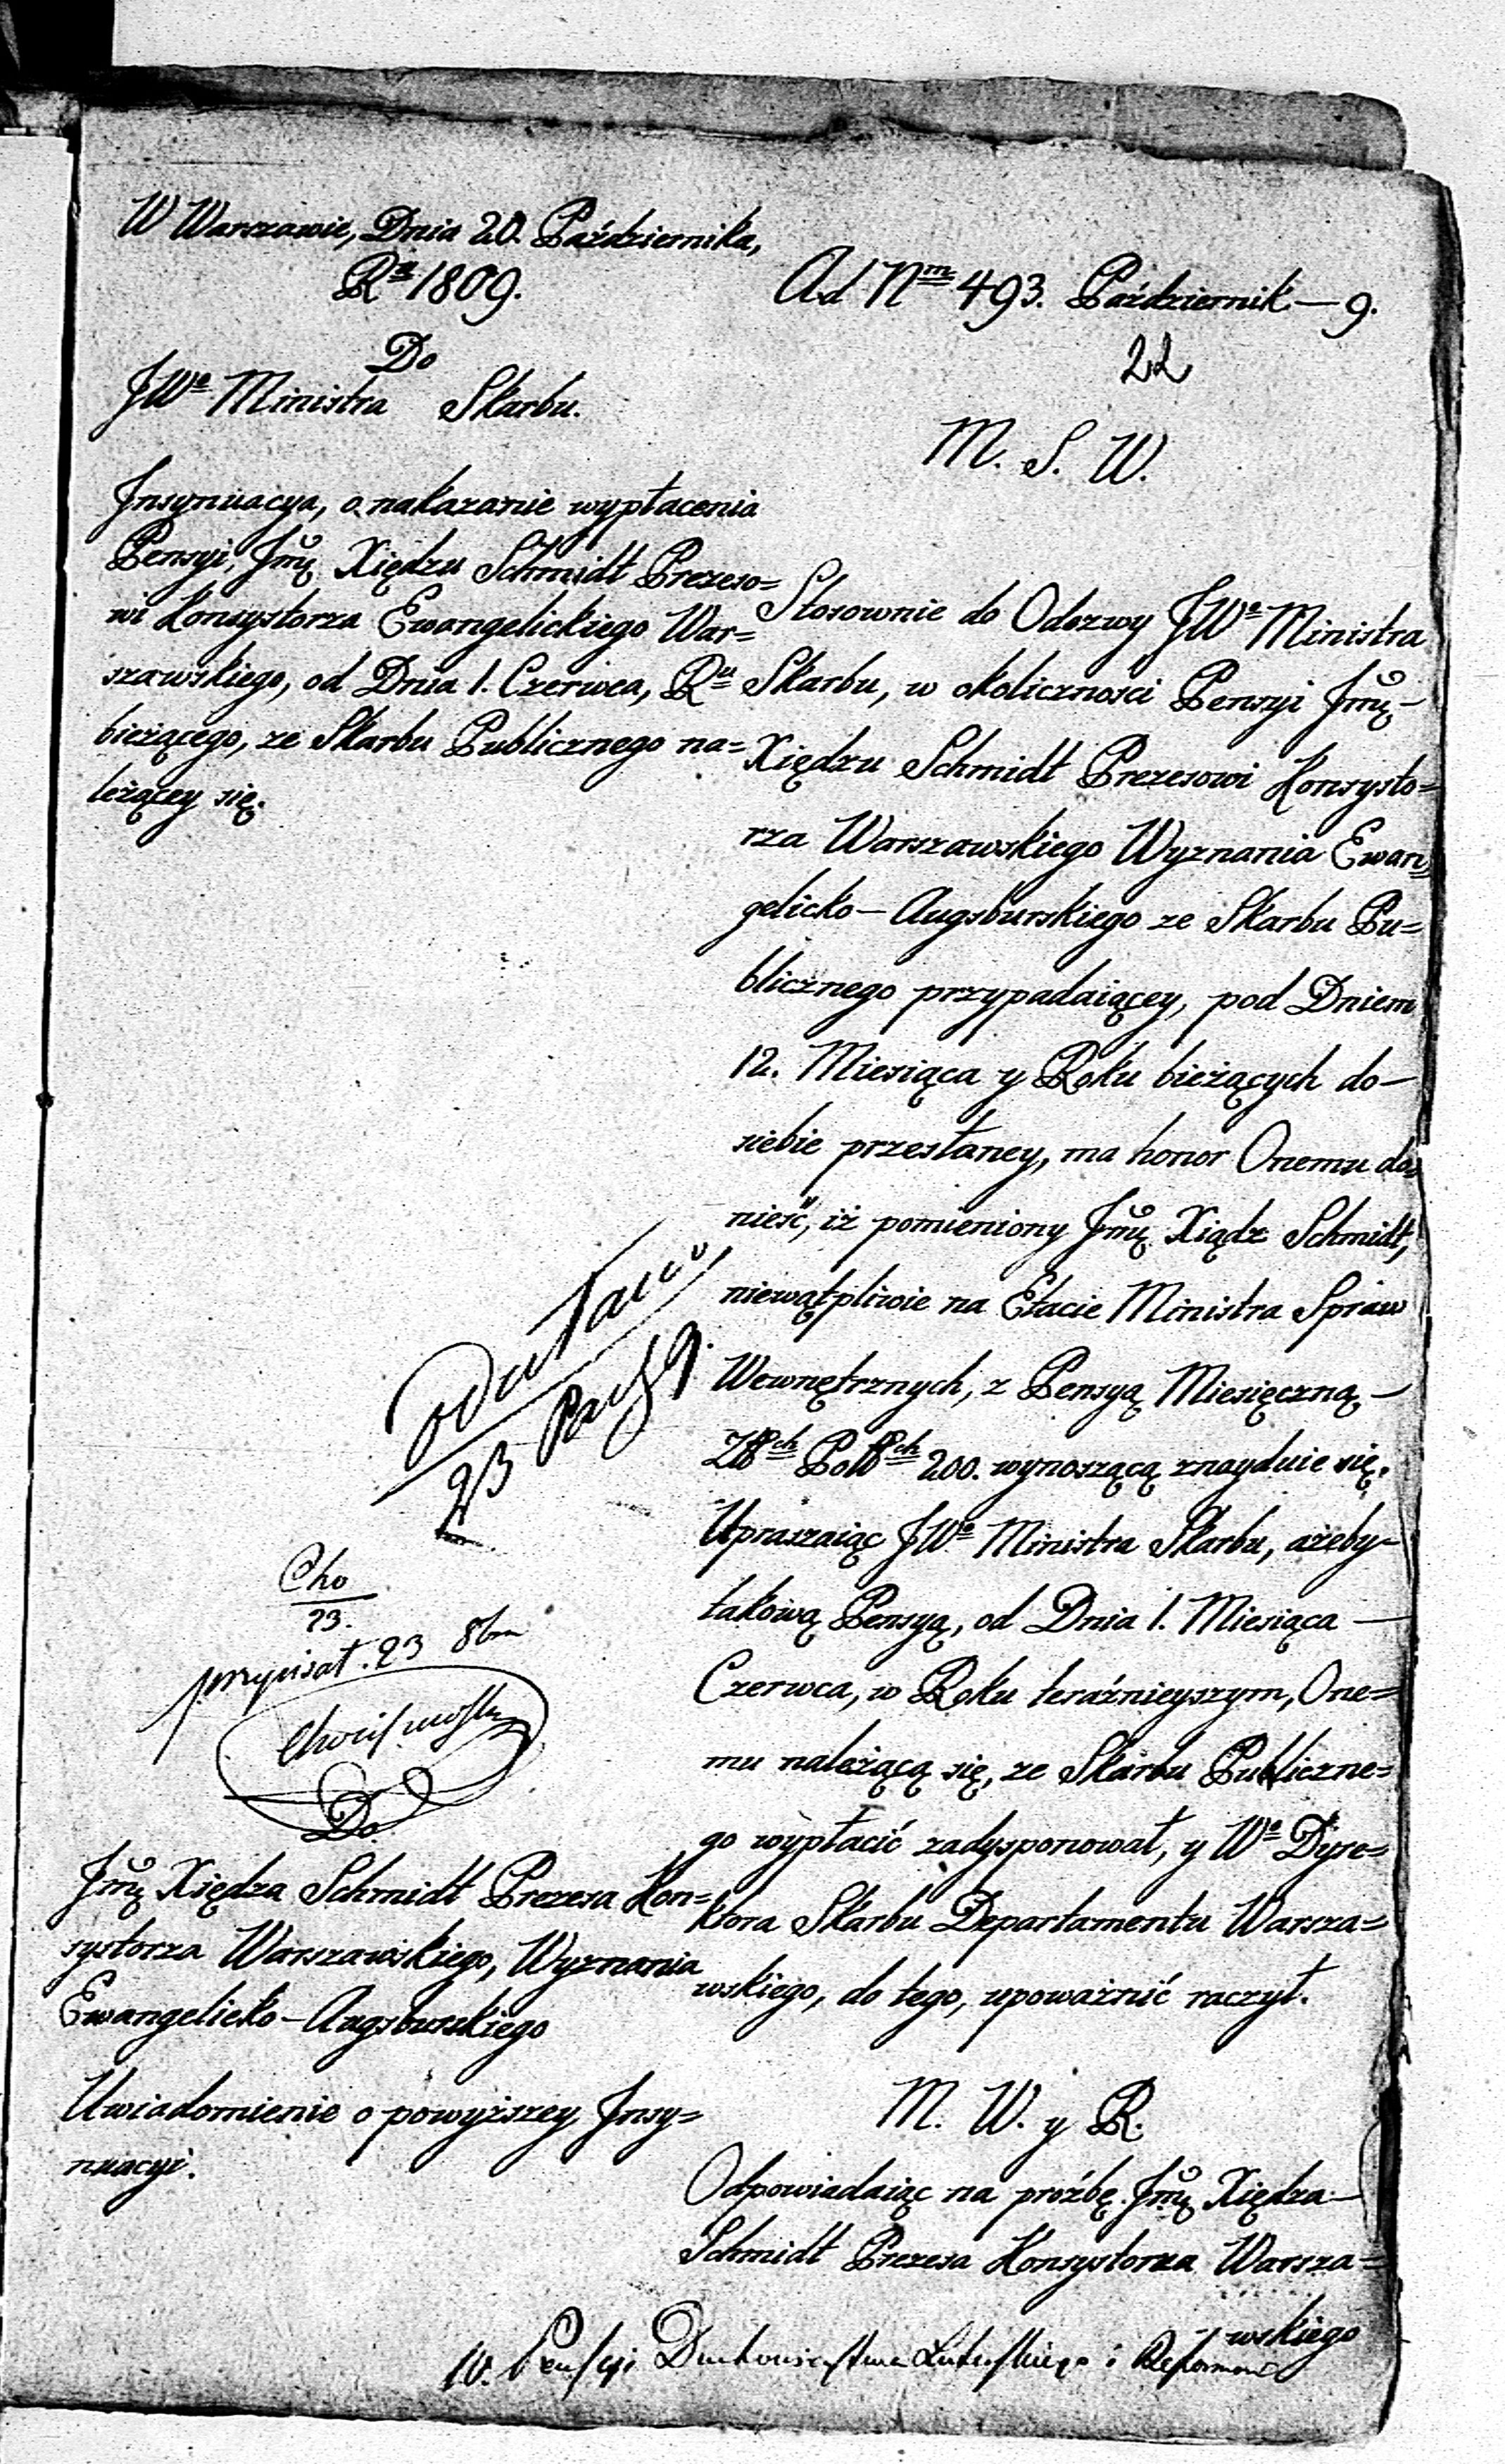 W Warszawie, Dnia 20. Października,
Ra 1809.
Ad Nm 493. Październik — 9.
22
Do
JWo Ministra Skarbu.
M. S. W.
Insynuacya, o nakazanie wypłacenia
Pensyi, Jmć Xiędzu Schmidt Prezeso=
wi Konsystorza Ewangelickiego War=
szawskiego, od Dnia 1. Czerwca, Ru
bieżącego, ze Skarbu Publicznego na=
leżącey się.
Stosownie do Odezwy JWo Ministra
Skarbu, w okoliczności Pensyi Jmć —
Xiędzu Schmidt Prezesowi Konsysto=
rza Warszawskiego Wyznania Ewan=
gelicko — Augsburskiego ze Skarbu Pu=
blicznego przypadaiącey, pod Dniem
12. Miesiąca y Roku bieżących do —
siebie przesłaney, ma honor Onemu do=
nieść, iż pomieniony Jmć Xiądz Schmidt,
niewątpliwie na Etacie Ministra Spraw
Wewnętrznych, z Pensyą Miesięczną —
Złłch Polłch 200. wynoszącą znayduie się.
Upraszaiąc JWo Ministra Skarbu, ażeby —
takową Pensyą, od Dnia 1. Miesiąca —
Czerwca, w Roku teraźnieyszym, One=
mu należącą się, ze Skarbu Publiczne=
go wypłacić zadysponował, y Wo Dyre=
ktora Skarbu Departamentu Warsza=
wskiego, do tego, upoważnić raczył.
23
Cho
23.
przypisał. 23 8br
Do
Jmć Xiędza Schmidt Prezesa Kon=
systorza Warszawskiego, Wyznania
Ewangelicko — Augsburskiego
Uwiadomienie o powyższey Insy=
nuacyi.
M. W. y R.
Odpowiadaiąc na prożbę Jmć Xiędza —
Schmidt Prezesa Konsystorza Warsza=
wskiego
10. Pensyi Duchowieństwa Luterskiego i Reformow